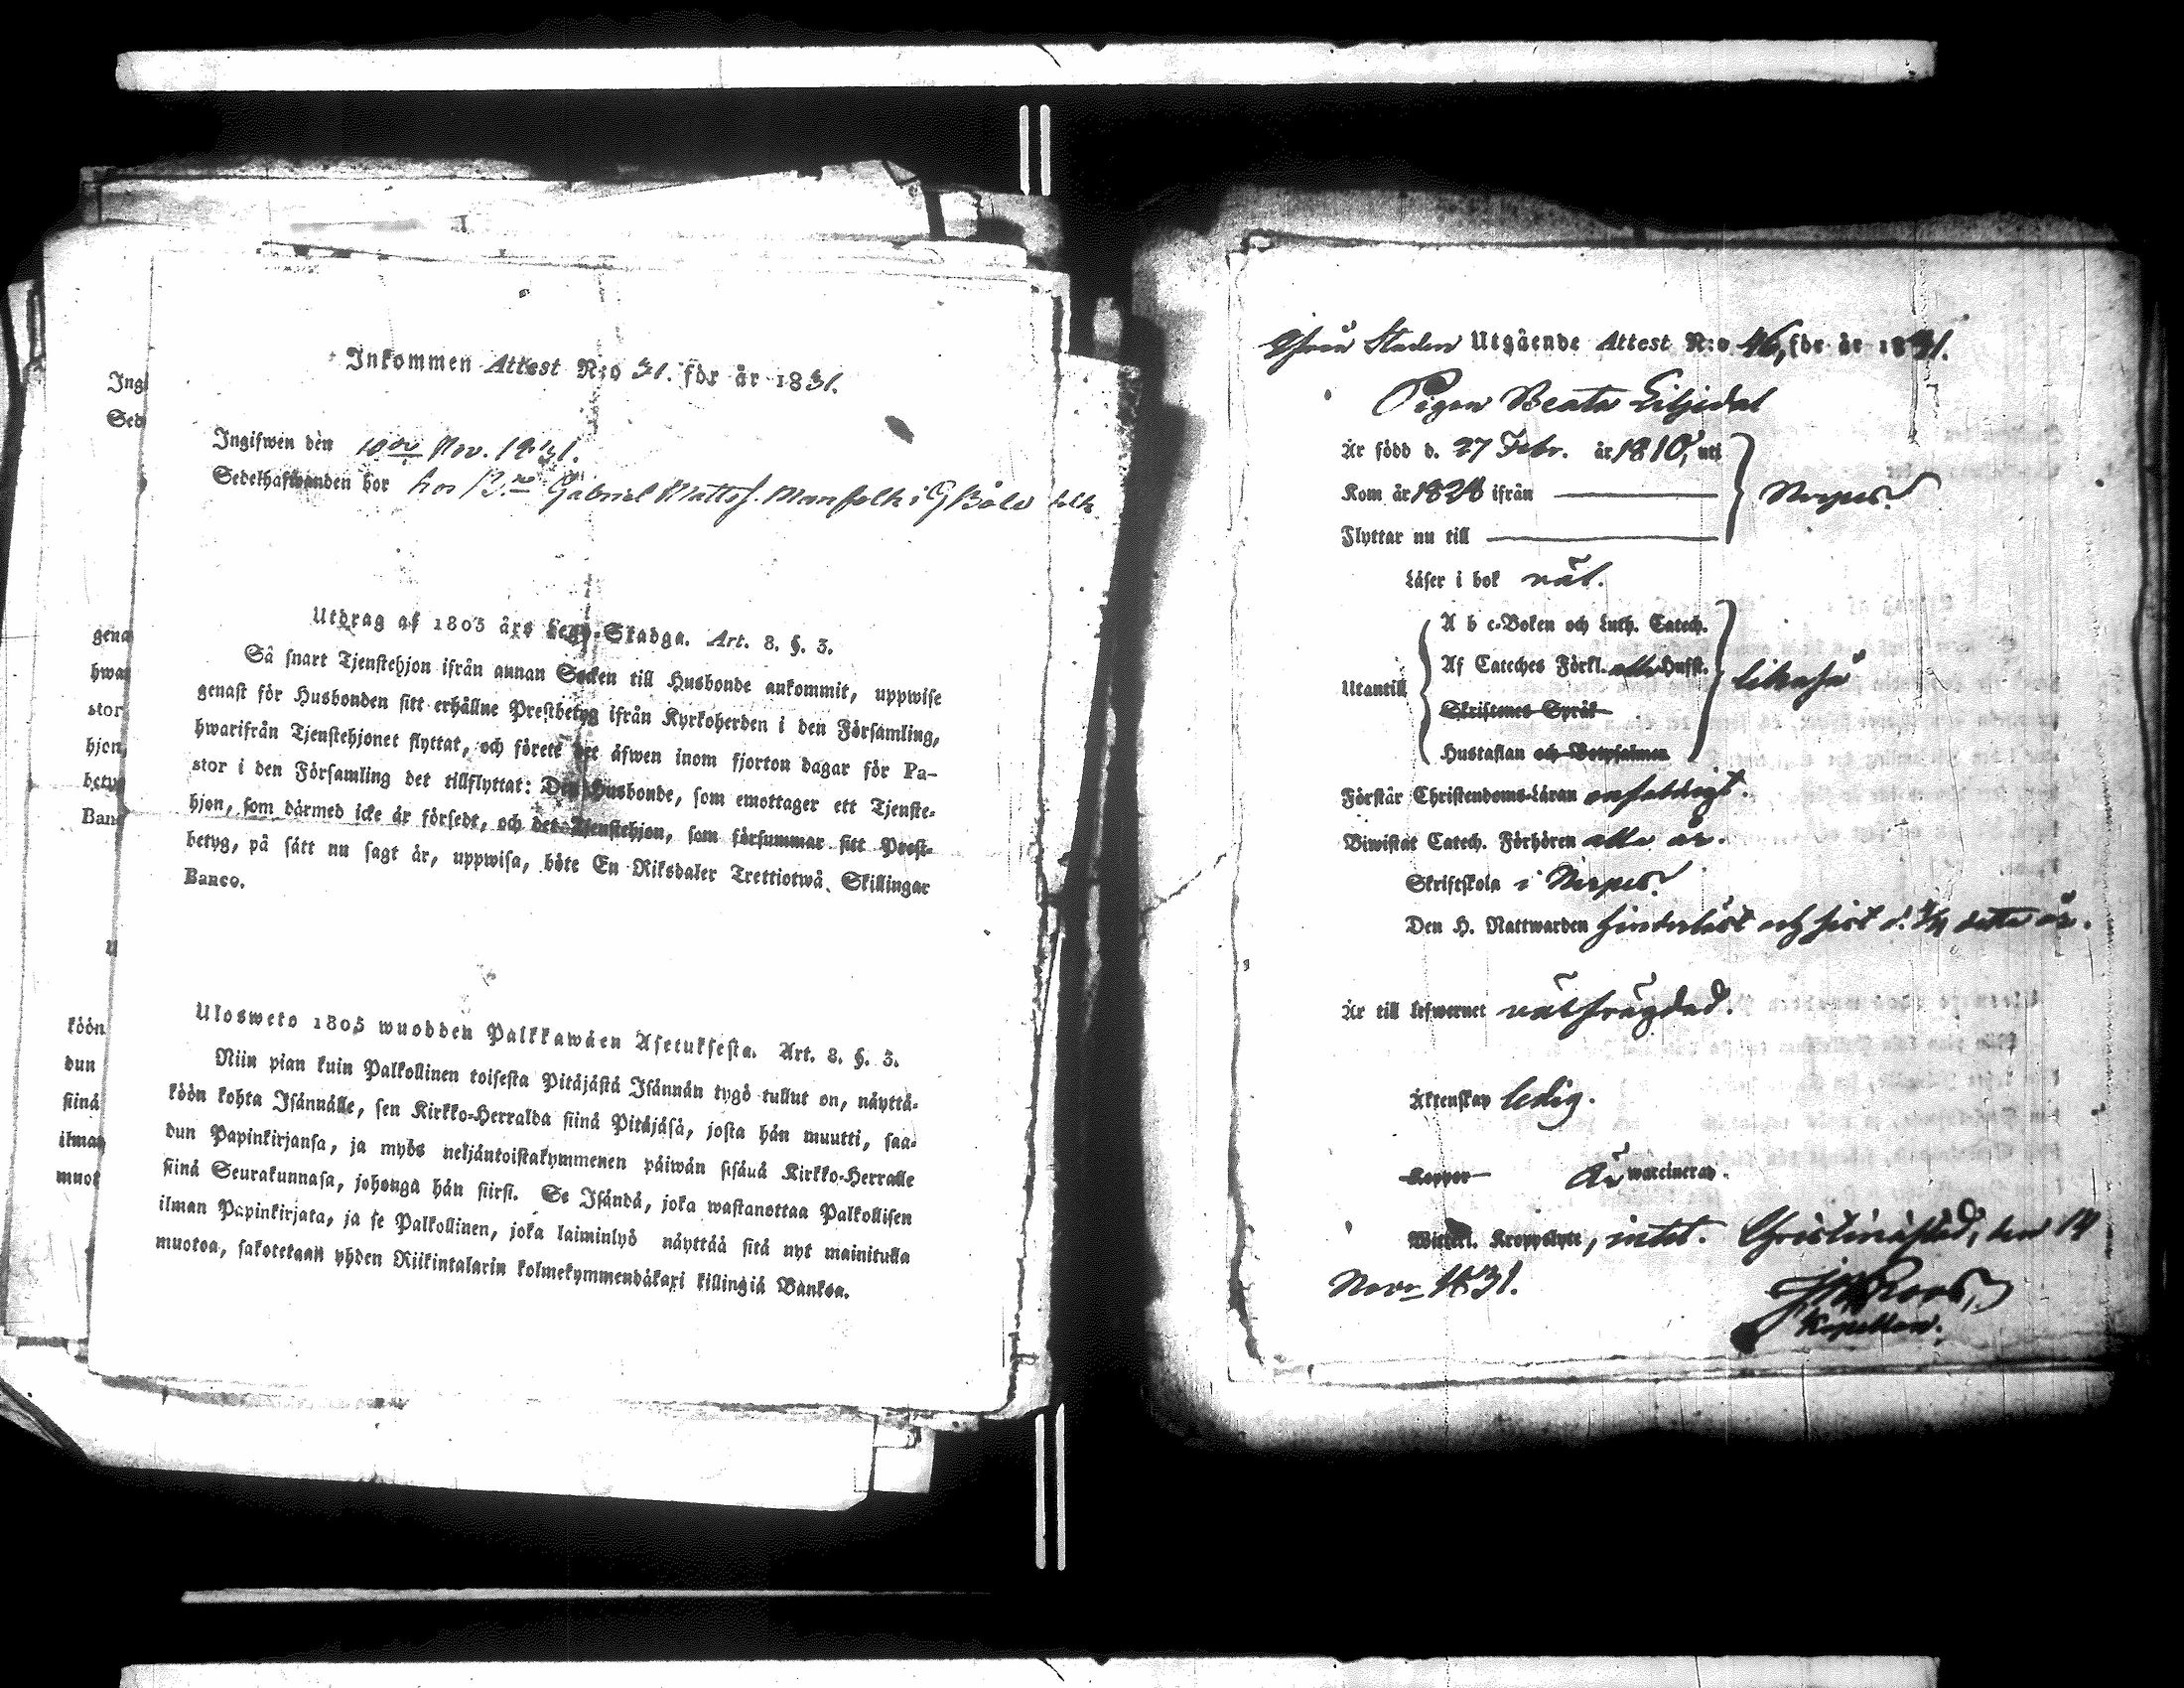 Inkommen Attest N:o 31. för år 1831.
Ingifwen den 10de Nov. 1831.
Sedelhafwanden hor hos B.n Gabriel Mattss. Manfolk i G Böle
Utdrag af 1805 års Lego-Stadga. Art. 8. §. 3.
Så snart Tjenstehjon ifrån annan Socken till Husbonde ankommit, uppwise
genast för Husbonden sitt erhållne Prestbetyg ifrån Kyrkoherden i den Församling,
hwarifrån Tjenstehjonet flyttat, och förete det äfwen inom fjorton dagar för Pa-
stor i den Församling det tillflyttat: Den Husbonde, som emottager ett Tjenste-
hjon, som dårmed icke är försedt, och det Tjenstehjon, som försummar sitt Prest-
betyg, på sätt nu sagt är, uppwisa, böte En Riksdaler Trettiotwå Skillingar
Banco.
Ulosweto 1805 wuodden Palkkawåen Asetuksesta. Art. 8. §. 3.
Niin pian kuin Palkollinen toisesta Pitåjåstå Isånnån tygö tullut on, nåyttå-
köön kohta Isånnålle, sen Kirkko-Herralda siinå Pitåjåså, josta hån muutti, saa-
dun Papinkirjansa, ja myös neljåntoistakymmenen påiwån sisåuå Kirkko-Herralle
siinå Seurakunnasa, johonga hån siirsi. Se Isåndå, joka wastanottaa Palkollisen
ilman Papinkirjata, ja se Palkollinen, joka laiminlyö nåyttåå sitå nyt mainitulla
muotoa, sakotetaan yhden Riikintalarin kolmekymmendåkaxi killingiå Bankoa.
Ing
Sed
gena
hwar
stor
hjon,
betyg
Banc
U
köön
dun
siinå
ilman
muot
Ifrån Staden Utgående Attest N:o 46, för år 1831.
Pigan Beata Liljedal
Är född d. 27 Febr. år 1810, uti
Kom år 1828 ifrån
Nerpes.
Flyttar nu till
Läser i bok väl.
Utantill
A b c-Boken och Luth. Catech.
Af Cateches Förkl. alla Hufst.
likaså
Skriftenes Språk
Hustaflan och Botpsalmen
Förstår Christendoms-Läran enfaldigt.
Biwistat Catech. Förhören alla år.
Skriftskola i Nerpes.
Den H. Nattwarden hinderlöst och sist d. detta år.
Är till lefwernet välfrägdad.
Äktenskap ledig.
Koppor Är waccinerad.
Wittkl. Kroppslyte, intet. Christinæstad, den 14
Nov. 1831.
Roos,
Kapellan.